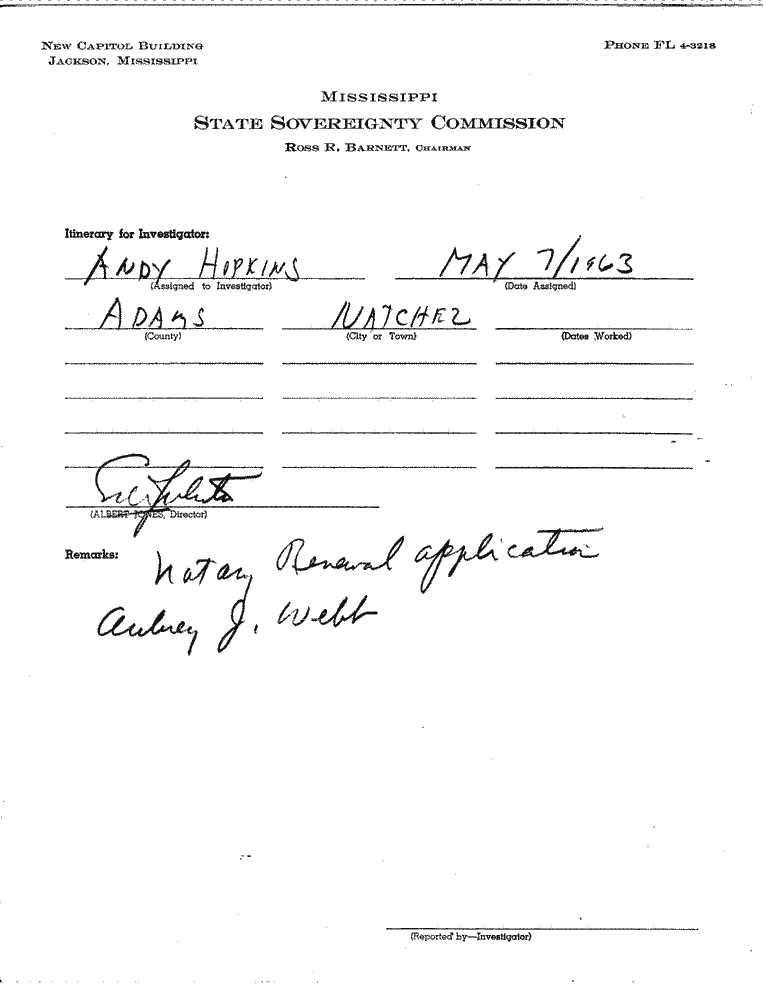 NEW CAPITOL BUILDING
JACKSON, MISSISSIPPI
PHONE FL 4-3218
MISSISSIPPI
STATE SOVEREIGNTY COMMISSION
ROSS R. BARNETT, CHAIRMAN
Itinerary for Investigator:
ANDY HOPKINS MAY 7/1963
(Assigned to Investigator) (Date Assigned)
ADAMS NATCHEZ
(County) (City or Town) (Dates Worked)
(ALBERT JONES, Director)
Remarks: Notary Renewal application
Aubrey J. Webb
(Reported by—Investigator)